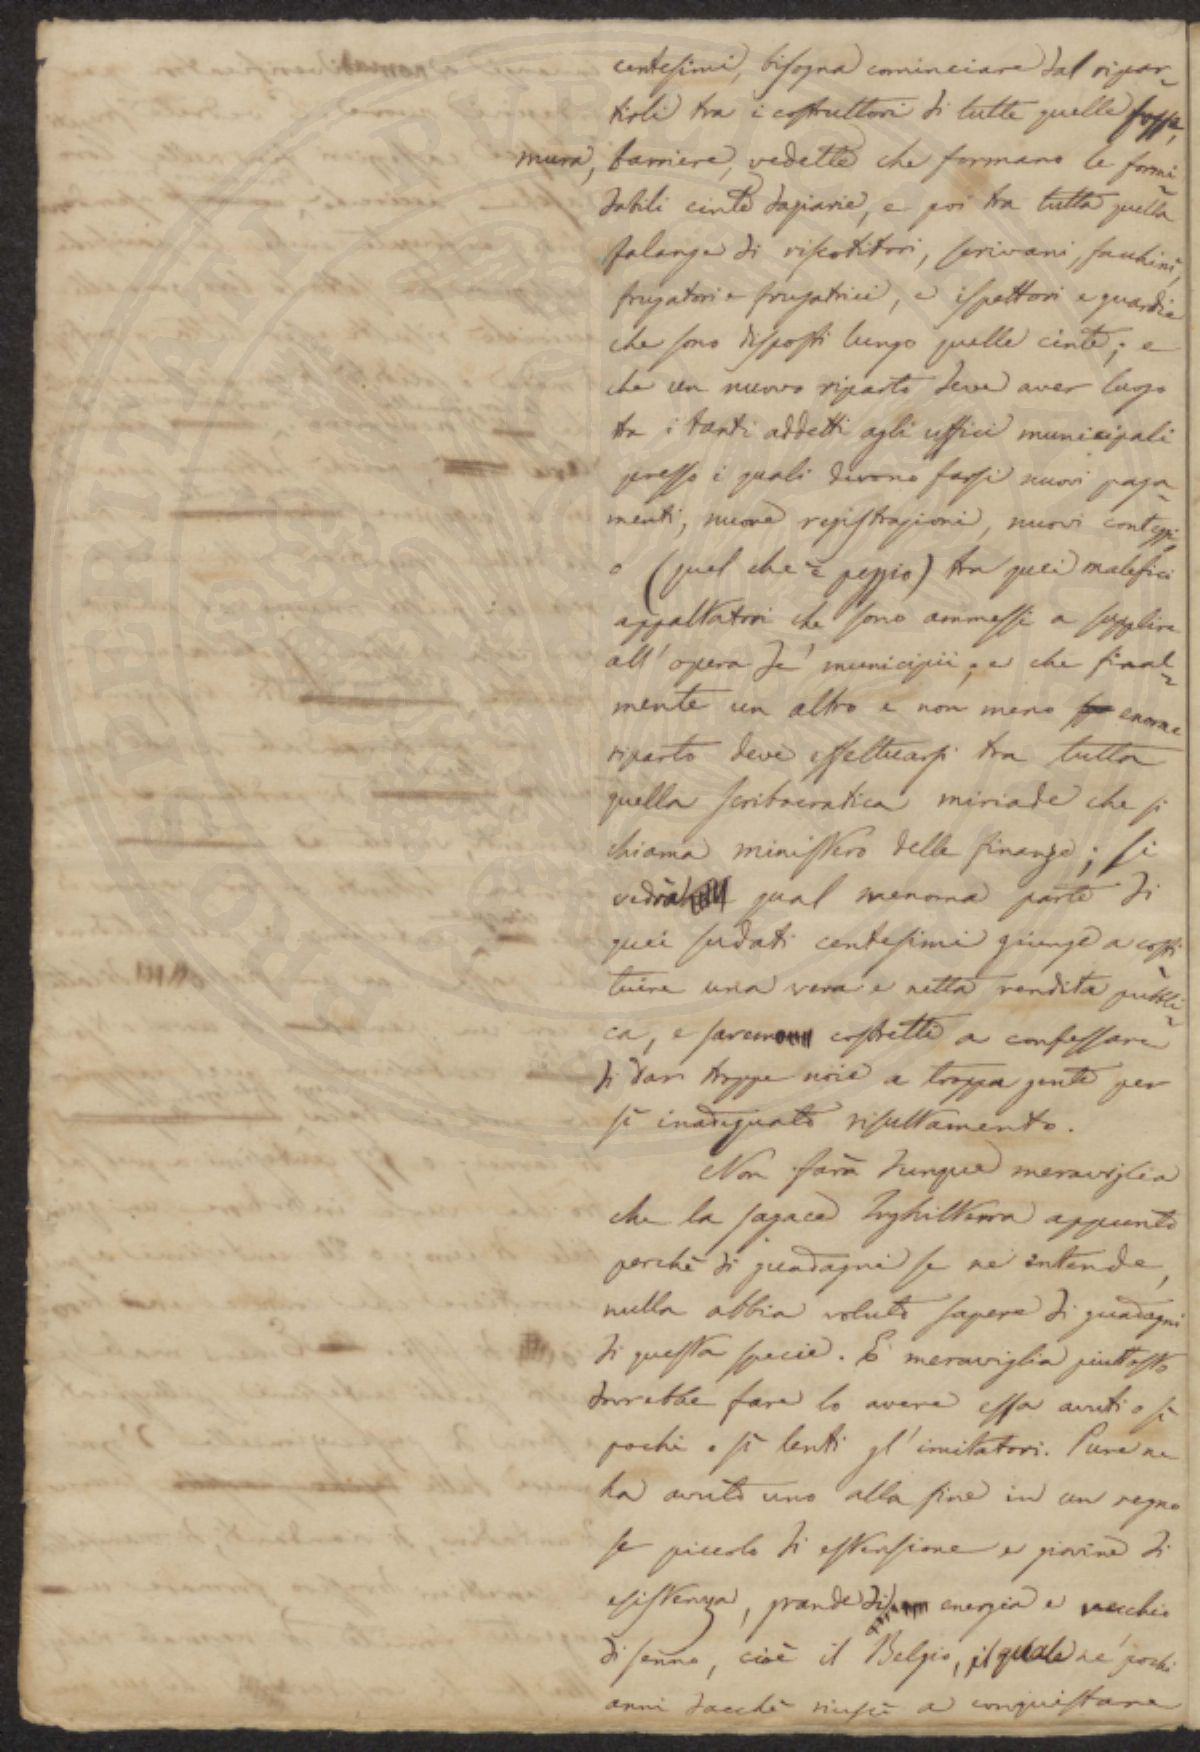 centesimi, bisogna cominciare dal ripar-
tirli tra i costruttori di tutte quelle fosse,
mura, barriere, vedette che formano le formi-
dabili cinte daziarie, e poi tra tutta quella
falange di riscotitori, scrivani, facchini,
frugatori e frugatrici, e ispettori e guardie
che sono disposti lungo quelle cinte; e
che un nuovo riparto deve aver luogo
tra i tanti addetti agli uffici municipali
presso i quali devono farsi nuovi paga-
menti, nuove registrazioni, nuovi conteggi,
o (quel che è peggio) tra quei malefici
appaltatori che sono ammessi a supplire
all'opera de' municipii; e che final-
mente un altro e non meno enorme
riparto deve effettuarsi tra tutta
quella scribocratica miriade che si
chiama ministero delle finanze; si
vedrà qual menoma parte di
quei sudati centesimi giunge a costi-
tuire una vera e netta rendita pubbli-
ca, e saremo costretti a confessare
di dar troppe noie a troppa gente per
sì inadeguato risultamento.
Non farà dunque meraviglia
che la sagace Inghilterra appunto
perchè di guadagni se ne intende,
nulla abbia voluto sapere di guadagni
di questa specie. E meraviglia piuttosto
dovrebbe fare lo avere essa avuti o sì
pochi o sì lenti gl'imitatori. Pure ne
ha avuto uno alla fine in un regno
se piccolo di estensione e giovine di
esistenza, grande di energia e vecchio
di senno, cioè il Belgio, il quale ne' pochi
anni dacchè riuscì a conquistare